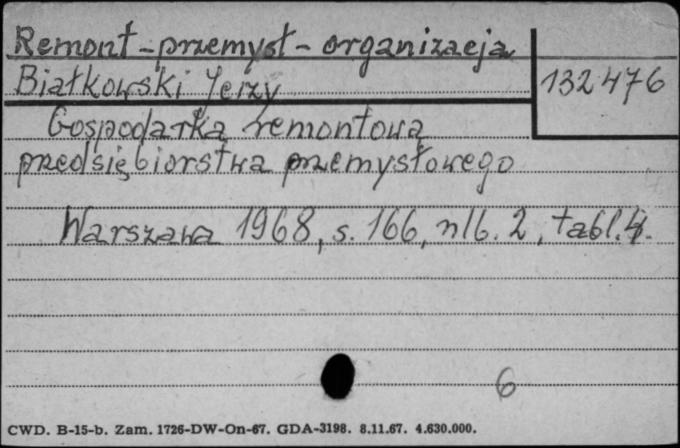 Remont - przemysł - organizacja
Białkowski Jerzy
132476
Gospodarka remontowa
przedsiębiorstwa przemysłowego
Warszawa 1968, s. 166, nlb. 2, tabl. 4.
6
CWD. B-15-b. Zam. 1726-DW-On-67. GDA-3198. 8.11.67. 4.630.000.